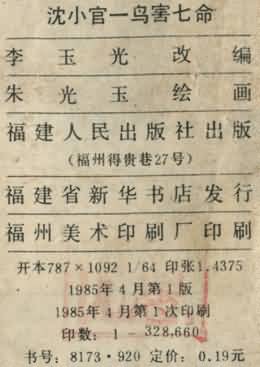 沈小官一鸟害七命
李玉光改编
朱光玉绘画
福建人民出版社出版
(福州得贵巷27号)
福建省新华书店发行
福州美术印刷厂印刷
开本787×1092 1/64 印张1.4375
1985年4月第1版
1985年4月第1次印刷
印数：1－328,660
书号：8173·920 定价：0.19元